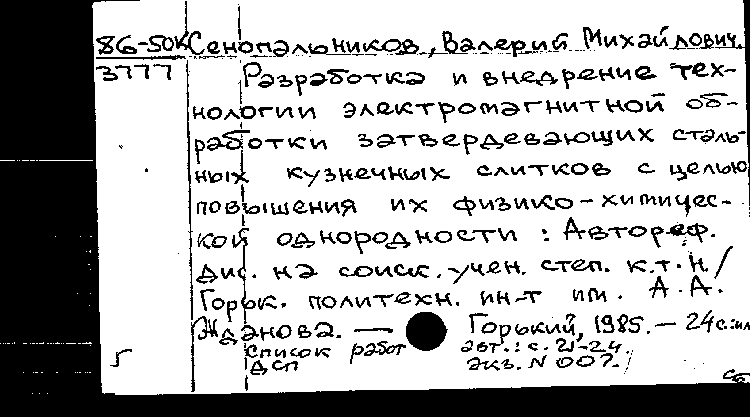 86-50К Сенопальников, Валерий Михайлович.
3777 Разработка и внедрение тех-
нологии электромагнитной об-
работки затвердевающих сталь-
ных кузнечных слитков с целью
повышения их физико-химичес-
кой однородности : Автореф.
дис. на соиск. учен. степ. к.т.н./
Горьк. политехн. ин-т им. А.А.
Жданова. — Горький, 1985. — 24 с.: ил
Список работ авт.: с. 21-24.
ДСП экз. N 007.